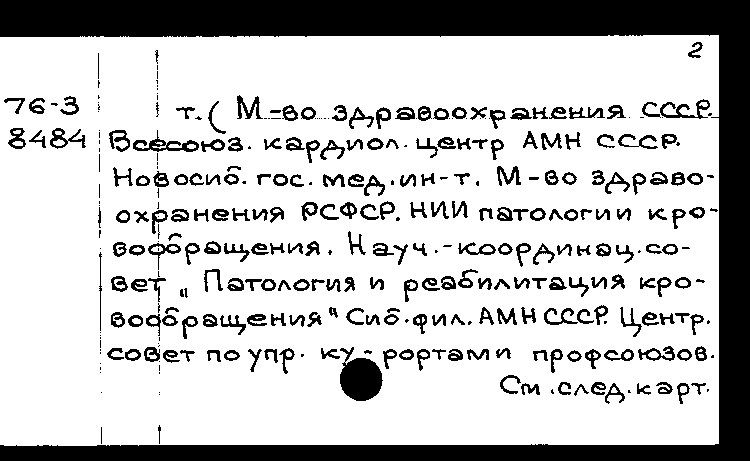 2
76-3 т. ( М-во здравоохранения СССР.
8484 Всесоюз. кардиол. центр АМН СССР.
Новосиб. гос. мед. ин-т. М-во здраво-
охранения РСФСР. НИИ патологии кро-
вообращения. Науч.-координац. со-
вет „ Патология и реабилитация кро-
вообращения" Сиб. фил. АМН СССР. Центр.
совет по упр. ку - рортами профсоюзов.
См. след. карт.